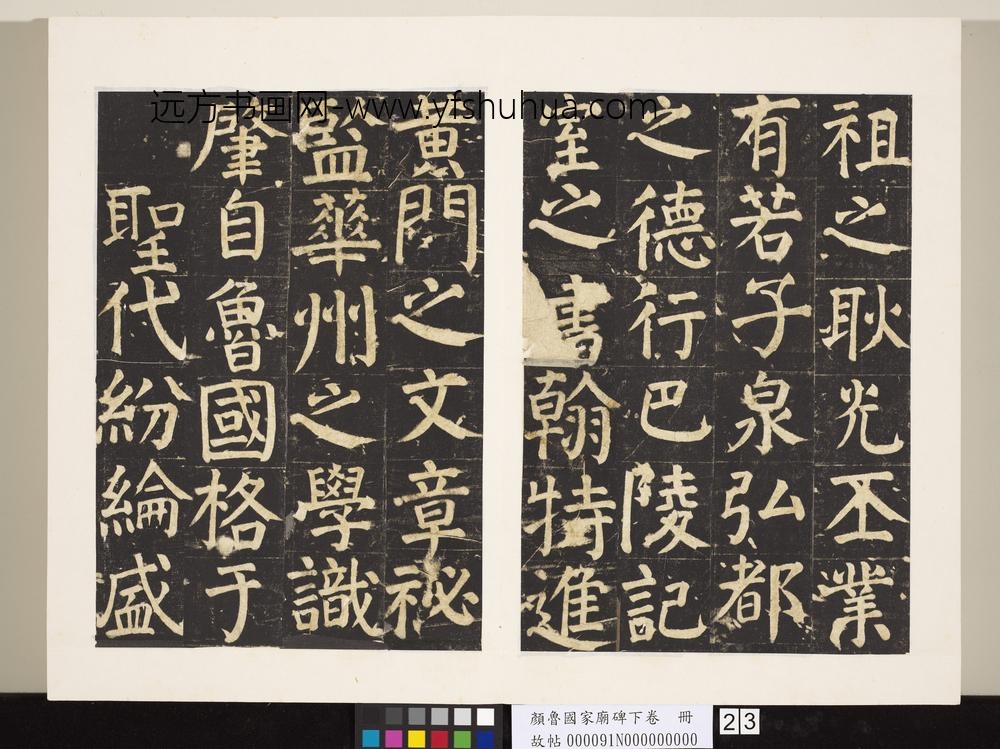 远方书画网-www.yfshuhua.com
祖之耿光丕業
有若子泉弘都
之德行巴陵記
室之書翰特進
黃門之文章祕
監華州之學識
肇自魯國格于
聖代紛綸盛
顏魯國家廟碑下卷 冊
故帖 000091N000000000
23